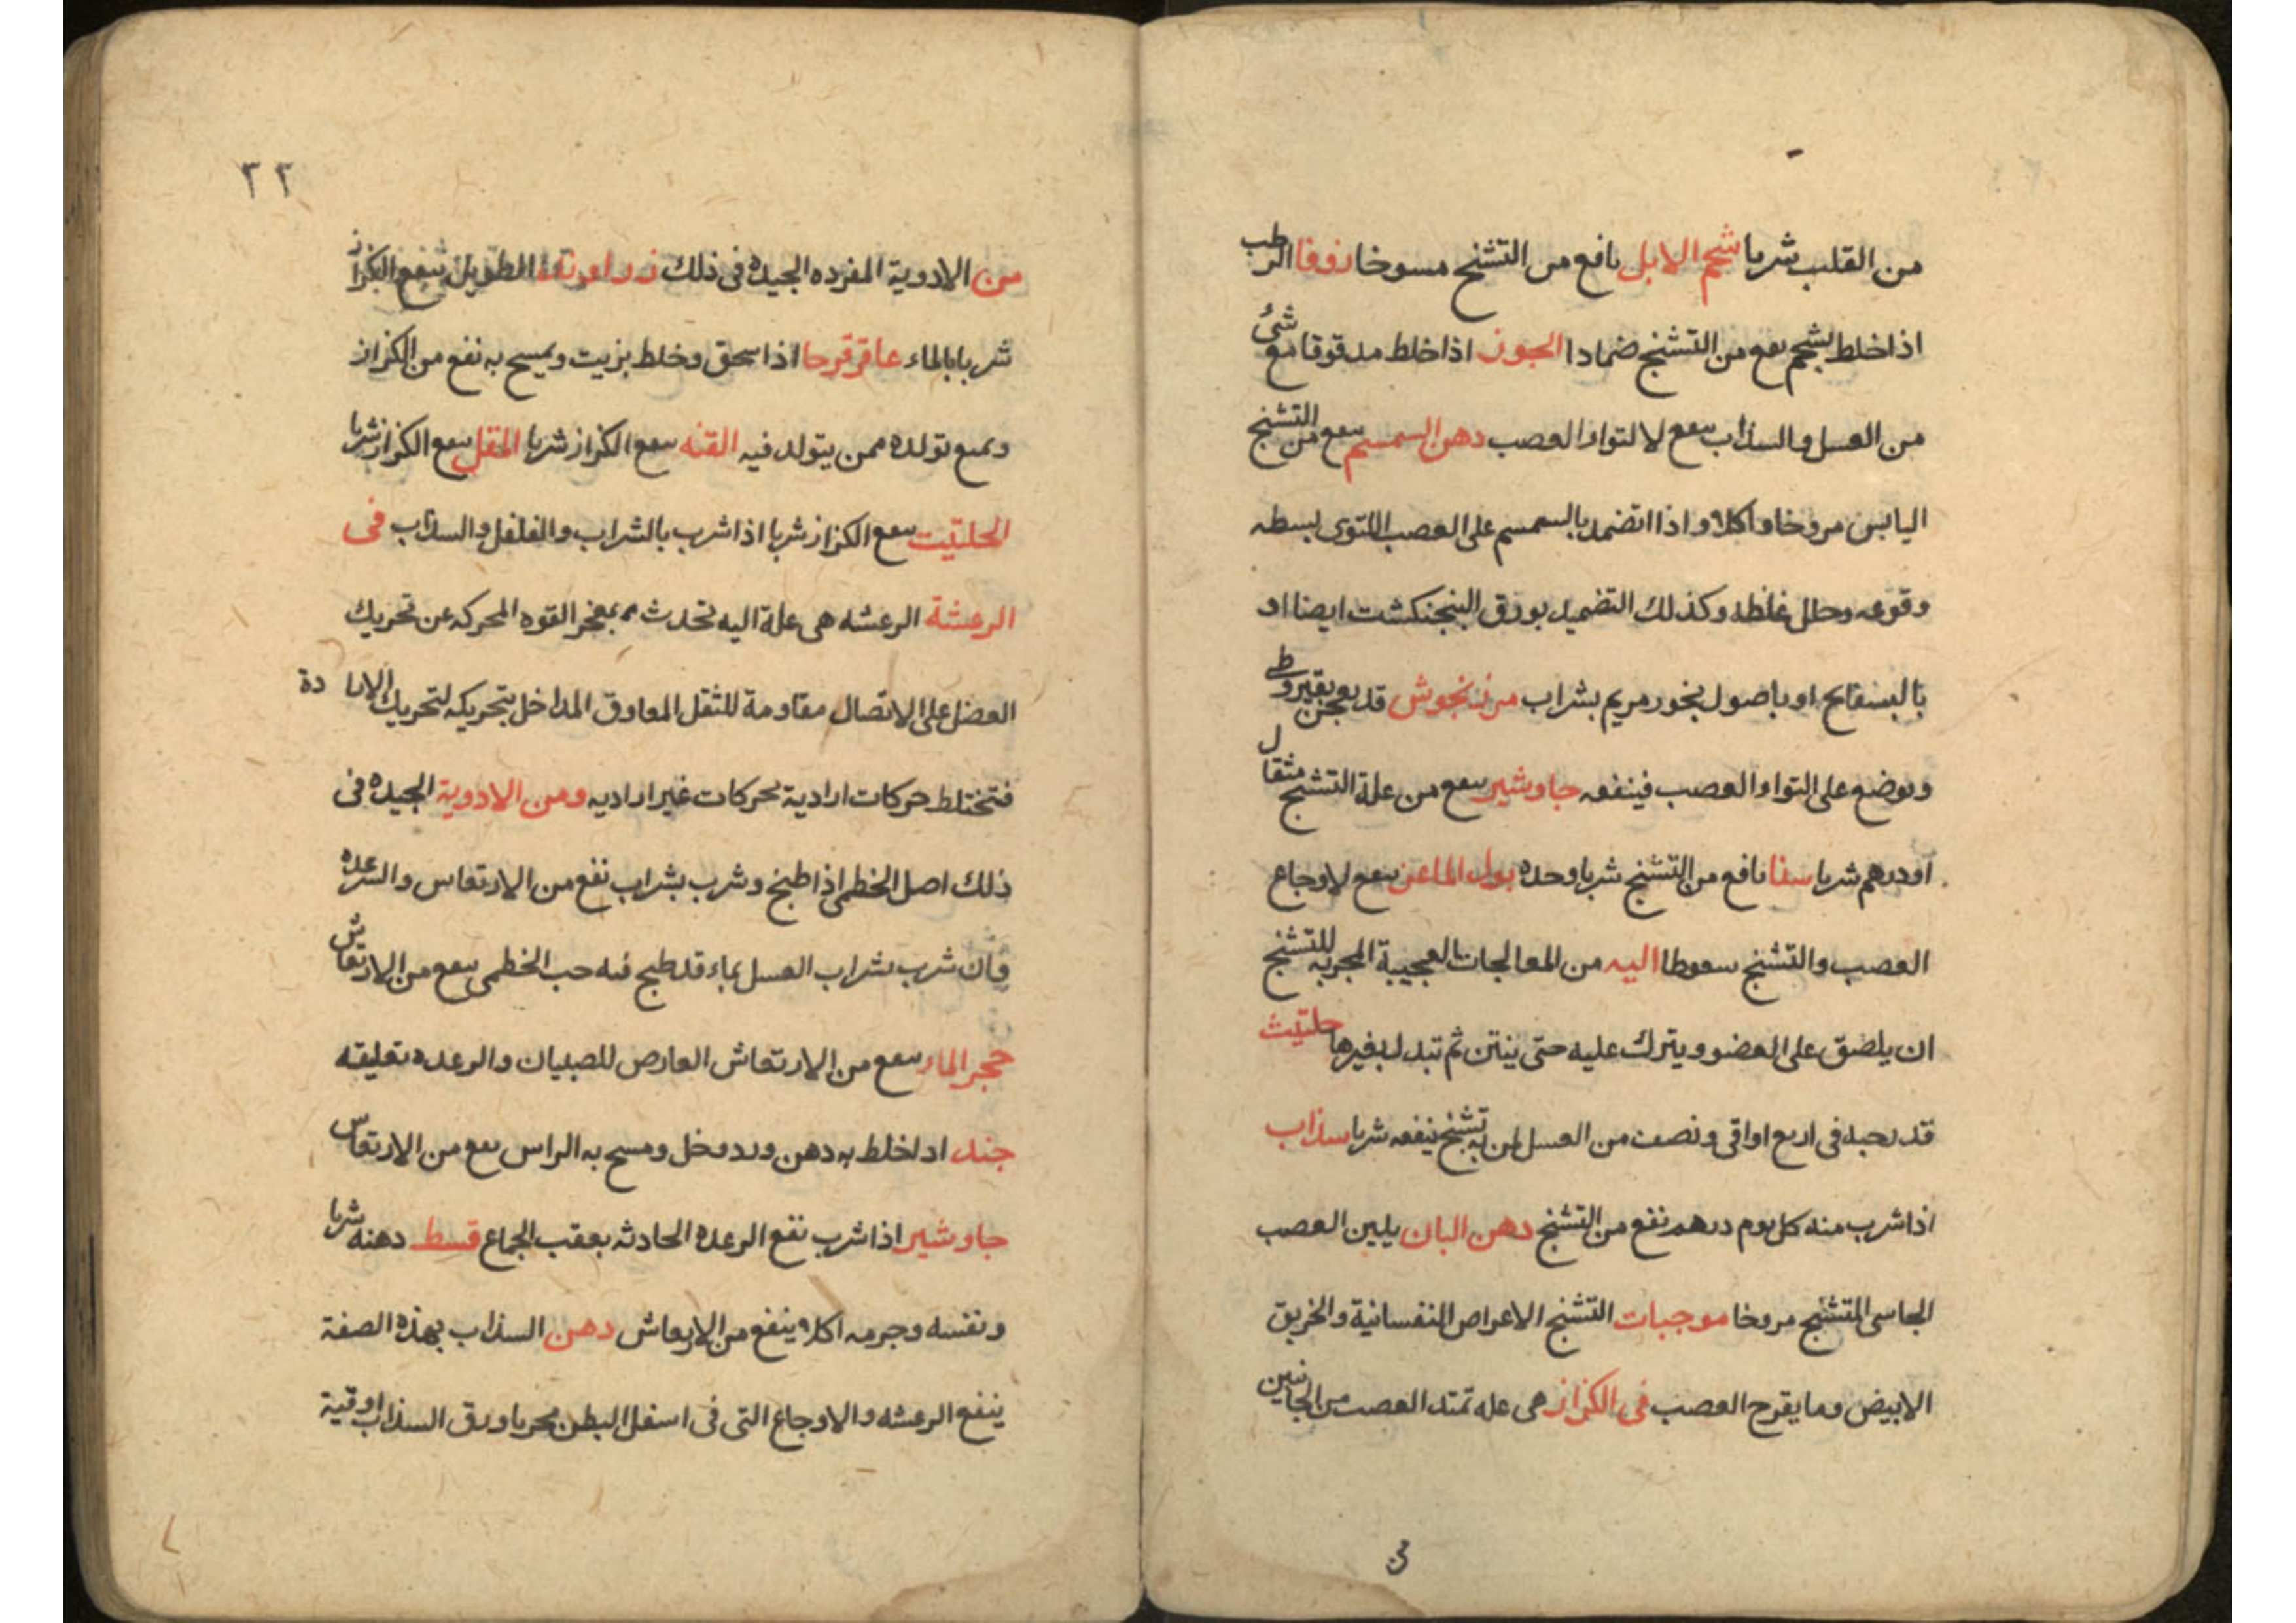 من القلب شربا شحم الابل نافع من التشنج مسوخا زوفا الرطب
اذا خلط بشحم نفع من التشنج ضمادا الجوز اذا خلط مدقوقا مع شئ
من العسل والسذاب ينفع لالتواء العصب دهن السمسم ينفع من التشنج
اليابس مروخا واكلا واذا اتضمد بالسمسم على العصب الملتوى بسطه
وقوعه وحلل غلظه وكذلك التضميد بورق البنجنكشت ايضا او
بالبسفايج او باصول بخور مريم بشراب مرزنجوش قد يعجن بقيروطى
ويوضع على التواء العصب فينفعه جاوشير ينفع من علة التشنج مثقال
او درهم شربا سنا نافع من التشنج شربا وحده بول الماعز ينفع لاوجاع
العصب والتشنج سعوطا اليه من المعالجات العجيبة المجربه للتشنج
ان يلصق على العضو ويترك عليه حتى ينتن ثم تبدل بغيرها حلتيت
قد يحبد فى اربع اواقى ونصف من العسل لمن به تشنج ينفعه شربا سذاب
اذا شرب منه كل يوم درهم نفع من التشنج دهن البان يلين العصب
الجاسى المتشنج مروخا موجبات التشنج الاعراض النفسانية والخربق
الابيض وما يقرح العصب فى الكزاز هى عله تمتد العصب من الجانبين
من
٢٢
من الادوية المفرده الجيده فى ذلك زراوند الطويل ينفع الكزاز
شربا بالماء عاقرقرحا اذا سحق وخلط بزيت ويمسح به نفع من الكزاز
ويمنع تولده ممن يتولد فيه القنه ينفع الكزاز شربا المقل ينفع الكزاز شربا
الحلتيت ينفع الكزاز شربا اذا شرب بالشراب والفلفل والسذاب فى
الرعشة الرعشه هى علة اليه تحدث بعجز القوه المحركه عن تحريك
العضل على الاتصال مقاومة للثقل المعاوق المداخل بتحريكه لتحريك الارادة
فتختلط حركات ارادية بحركات غير اراديه ومن الادوية الجيده فى
ذلك اصل الخطمى اذا طبخ وشرب بشراب نفع من الارتعاش والرعده
فان شرب بشراب العسل بماء قد طبخ فيه حب الخطمى ينفع من الارتعاش
حجر الماء ينفع من الارتعاش العارض للصبيان والرعده تعليقه
جند اذا خلط به دهن ورد وخل ومسح به الراس نفع من الارتعاش
جاوشير اذا شرب نفع الرعده الحادثه بعقب الجماع قسط دهنه شربا
ونفسه وجرمه اكلا ينفع من الارتعاش دهن السذاب بهذه الصفة
ينفع الرعشه والاوجاع التى فى اسفل البطن مجربا ورق السذاب اوقية